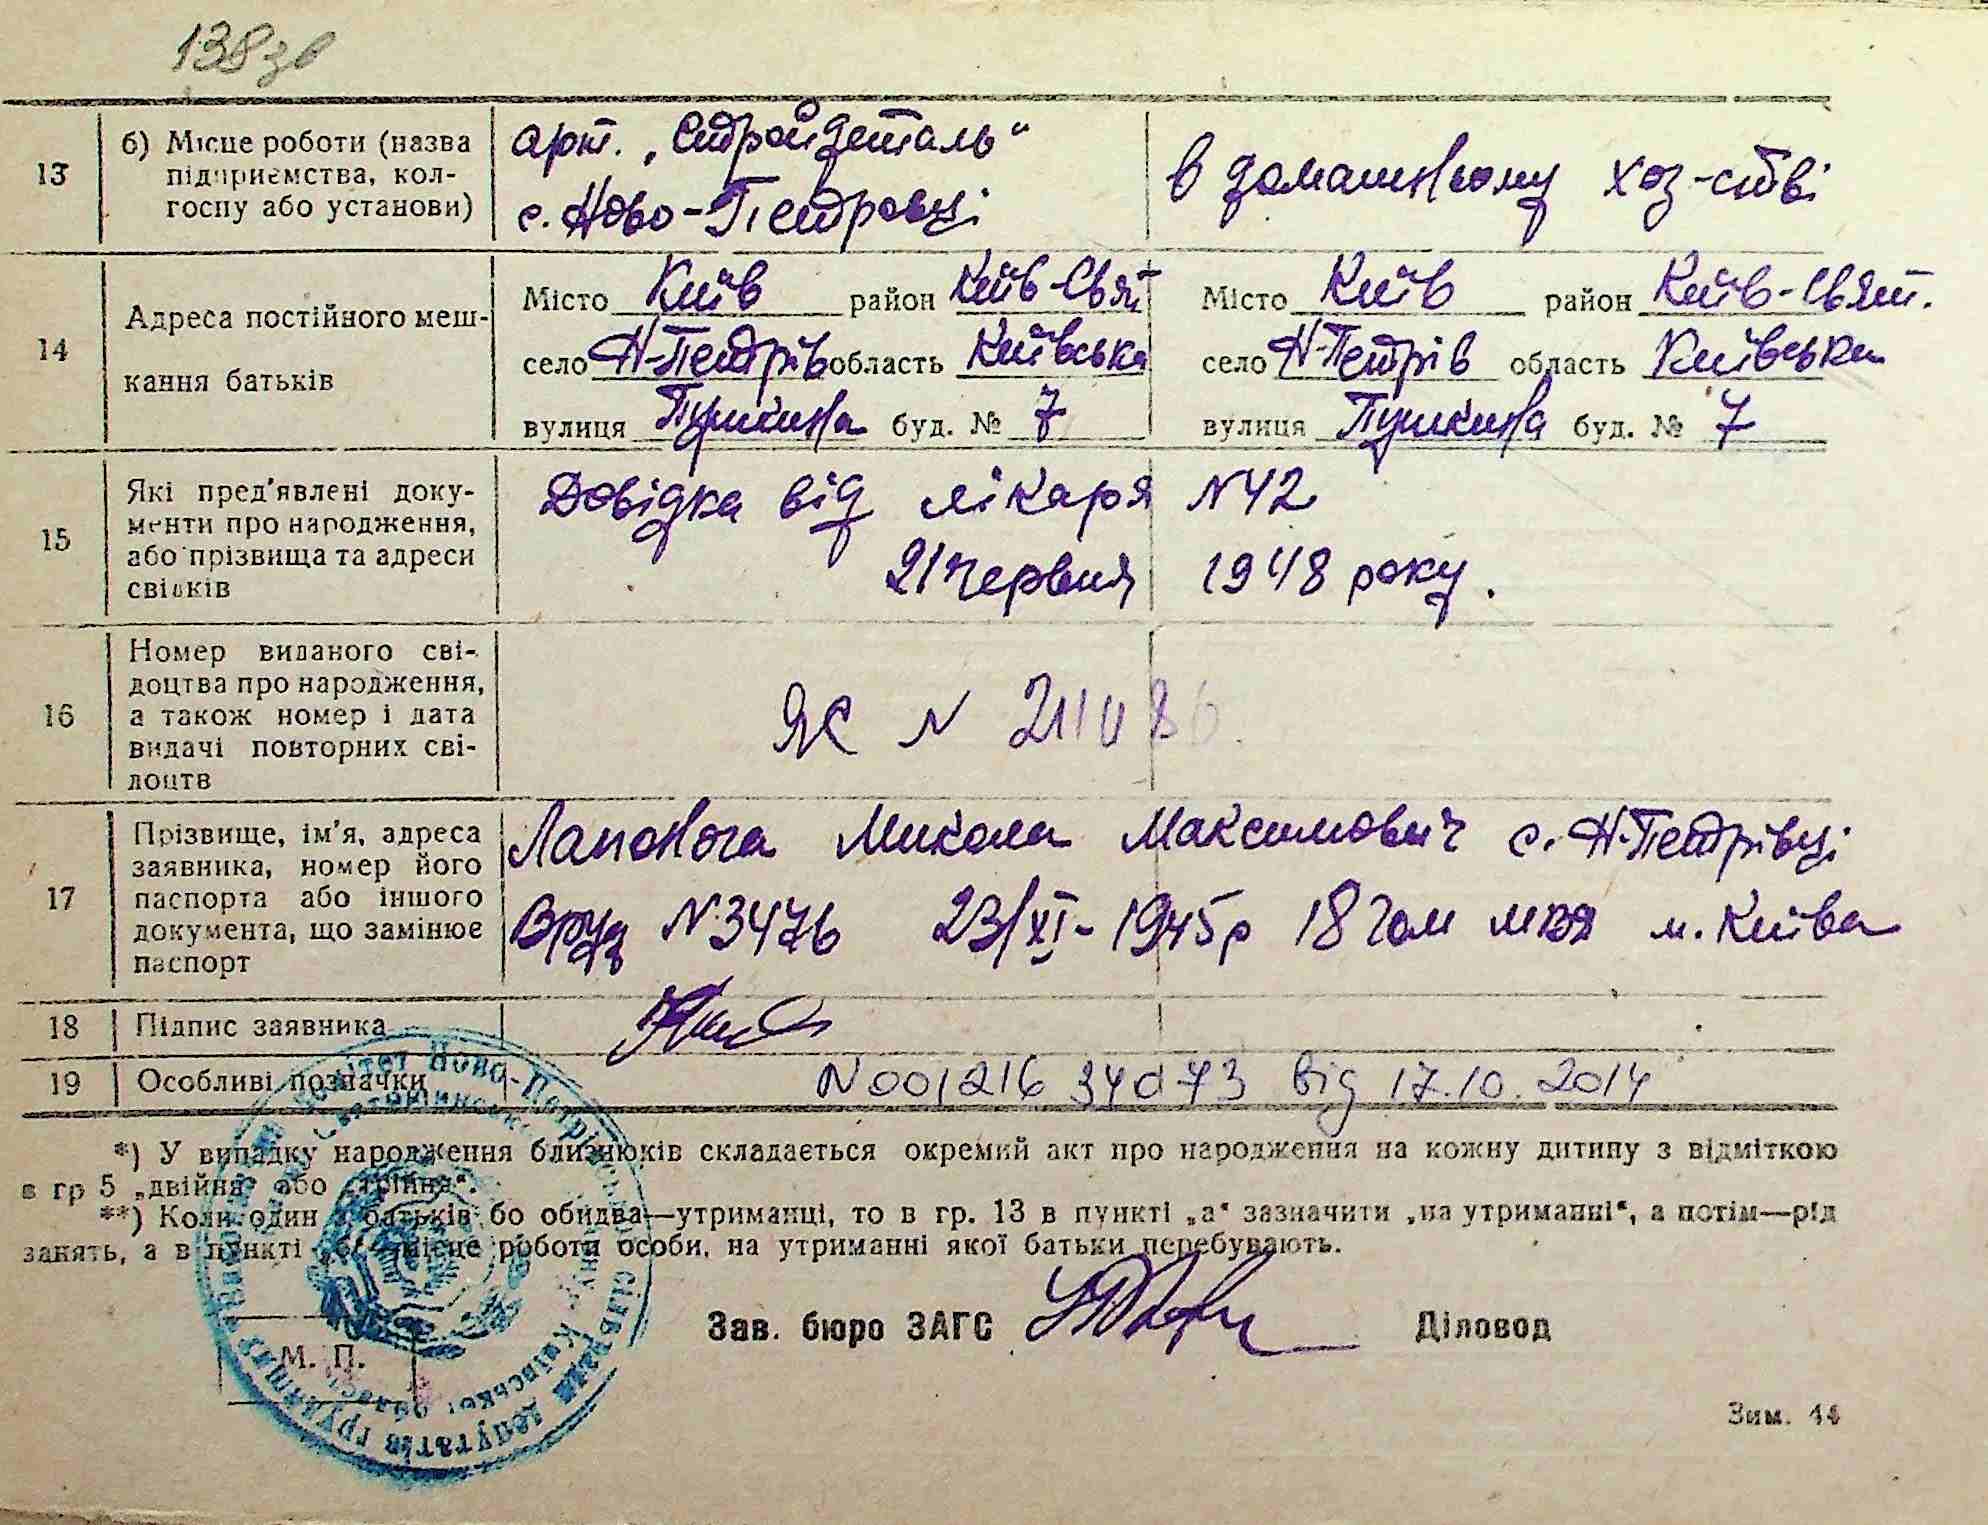 138зв
13 б) Місце роботи (назва підприємства, колгоспу або установи)
арт. „Стройдеталь“
с. Ново-Петровці
в домашньому хоз-стві
14 Адреса постійного мешкання батьків
Місто Київ район Київ-Свят
село Н-Петрів область Київська
вулиця Пушкина буд. № 7
Місто Київ район Київ-Свят.
село Н-Петрів область Київська
вулиця Пушкина буд. № 7
15 Які пред'явлені документи про народження, або прізвища та адреси свідків
Довідка від лікаря N 42
21 червня 1948 року.
16 Номер виданого свідоцтва про народження, а також номер і дата видачі повторних свідоцтв
ЯС N
17 Прізвище, ім'я, адреса заявника, номер його паспорта або іншого документа, що замінює паспорт
Лапонога Микола Максимович с. Н-Петрівці
N 3476 23/XI-1945р 18 м. Київа
18 Підпис заявника
19 Особливі позначки
N 001216 34073 від 17.10.2014
*) У випадку народження близнюків складається окремий акт про народження на кожну дитину з відміткою
в гр 5 „двійня“ або „трійня“.
**) Коли один з батьків бо обидва—утриманці, то в гр. 13 в пункті „а“ зазначити „на утриманні“, а потім—рід
занять, а в пункті „б“ місце роботи особи, на утриманні якої батьки перебувають.
Зав. бюро ЗАГС
Діловод
М. П.
Зим. 44